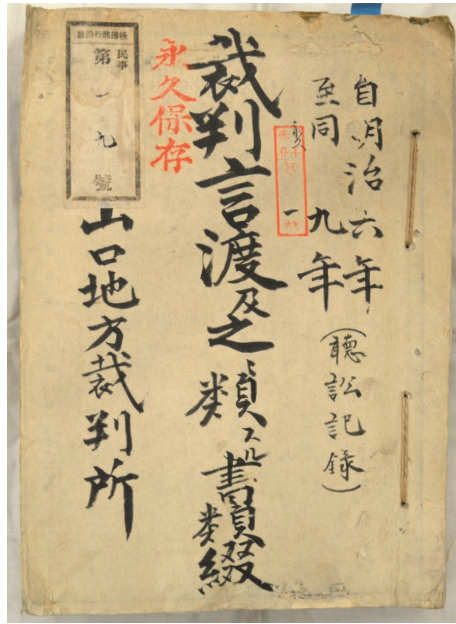 自明治六年
至同九年
(聴訟記録)
裁判言渡及之ニ類スル書類綴
永久保存
民事
第一九號
山口地方裁判所